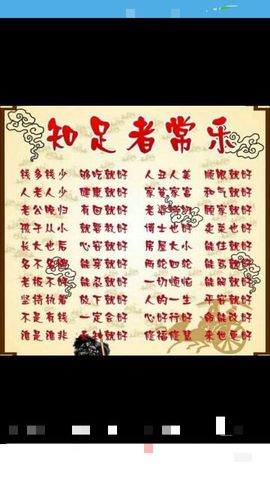 知足者常乐
钱多钱少 够吃就好 人丑人美 顺眼就好
人老人少 健康就好 家穷家富 和气就好
老公晚归 有回就好 老婆唠叨 顾家就好
孩子从小 就要教好 博士也好 卖菜也好
长大以后 心安就好 房屋大小 能住就好
名不名牌 能穿就好 两轮四轮 能驾就好
老板不好 能忍就好 一切烦恼 能解就好
坚持执著 放下就好 人的一生 平安就好
不是有钱 一定会好 心好行好 命能改好
谁是谁非 天知就好 修福修慧 来世更好